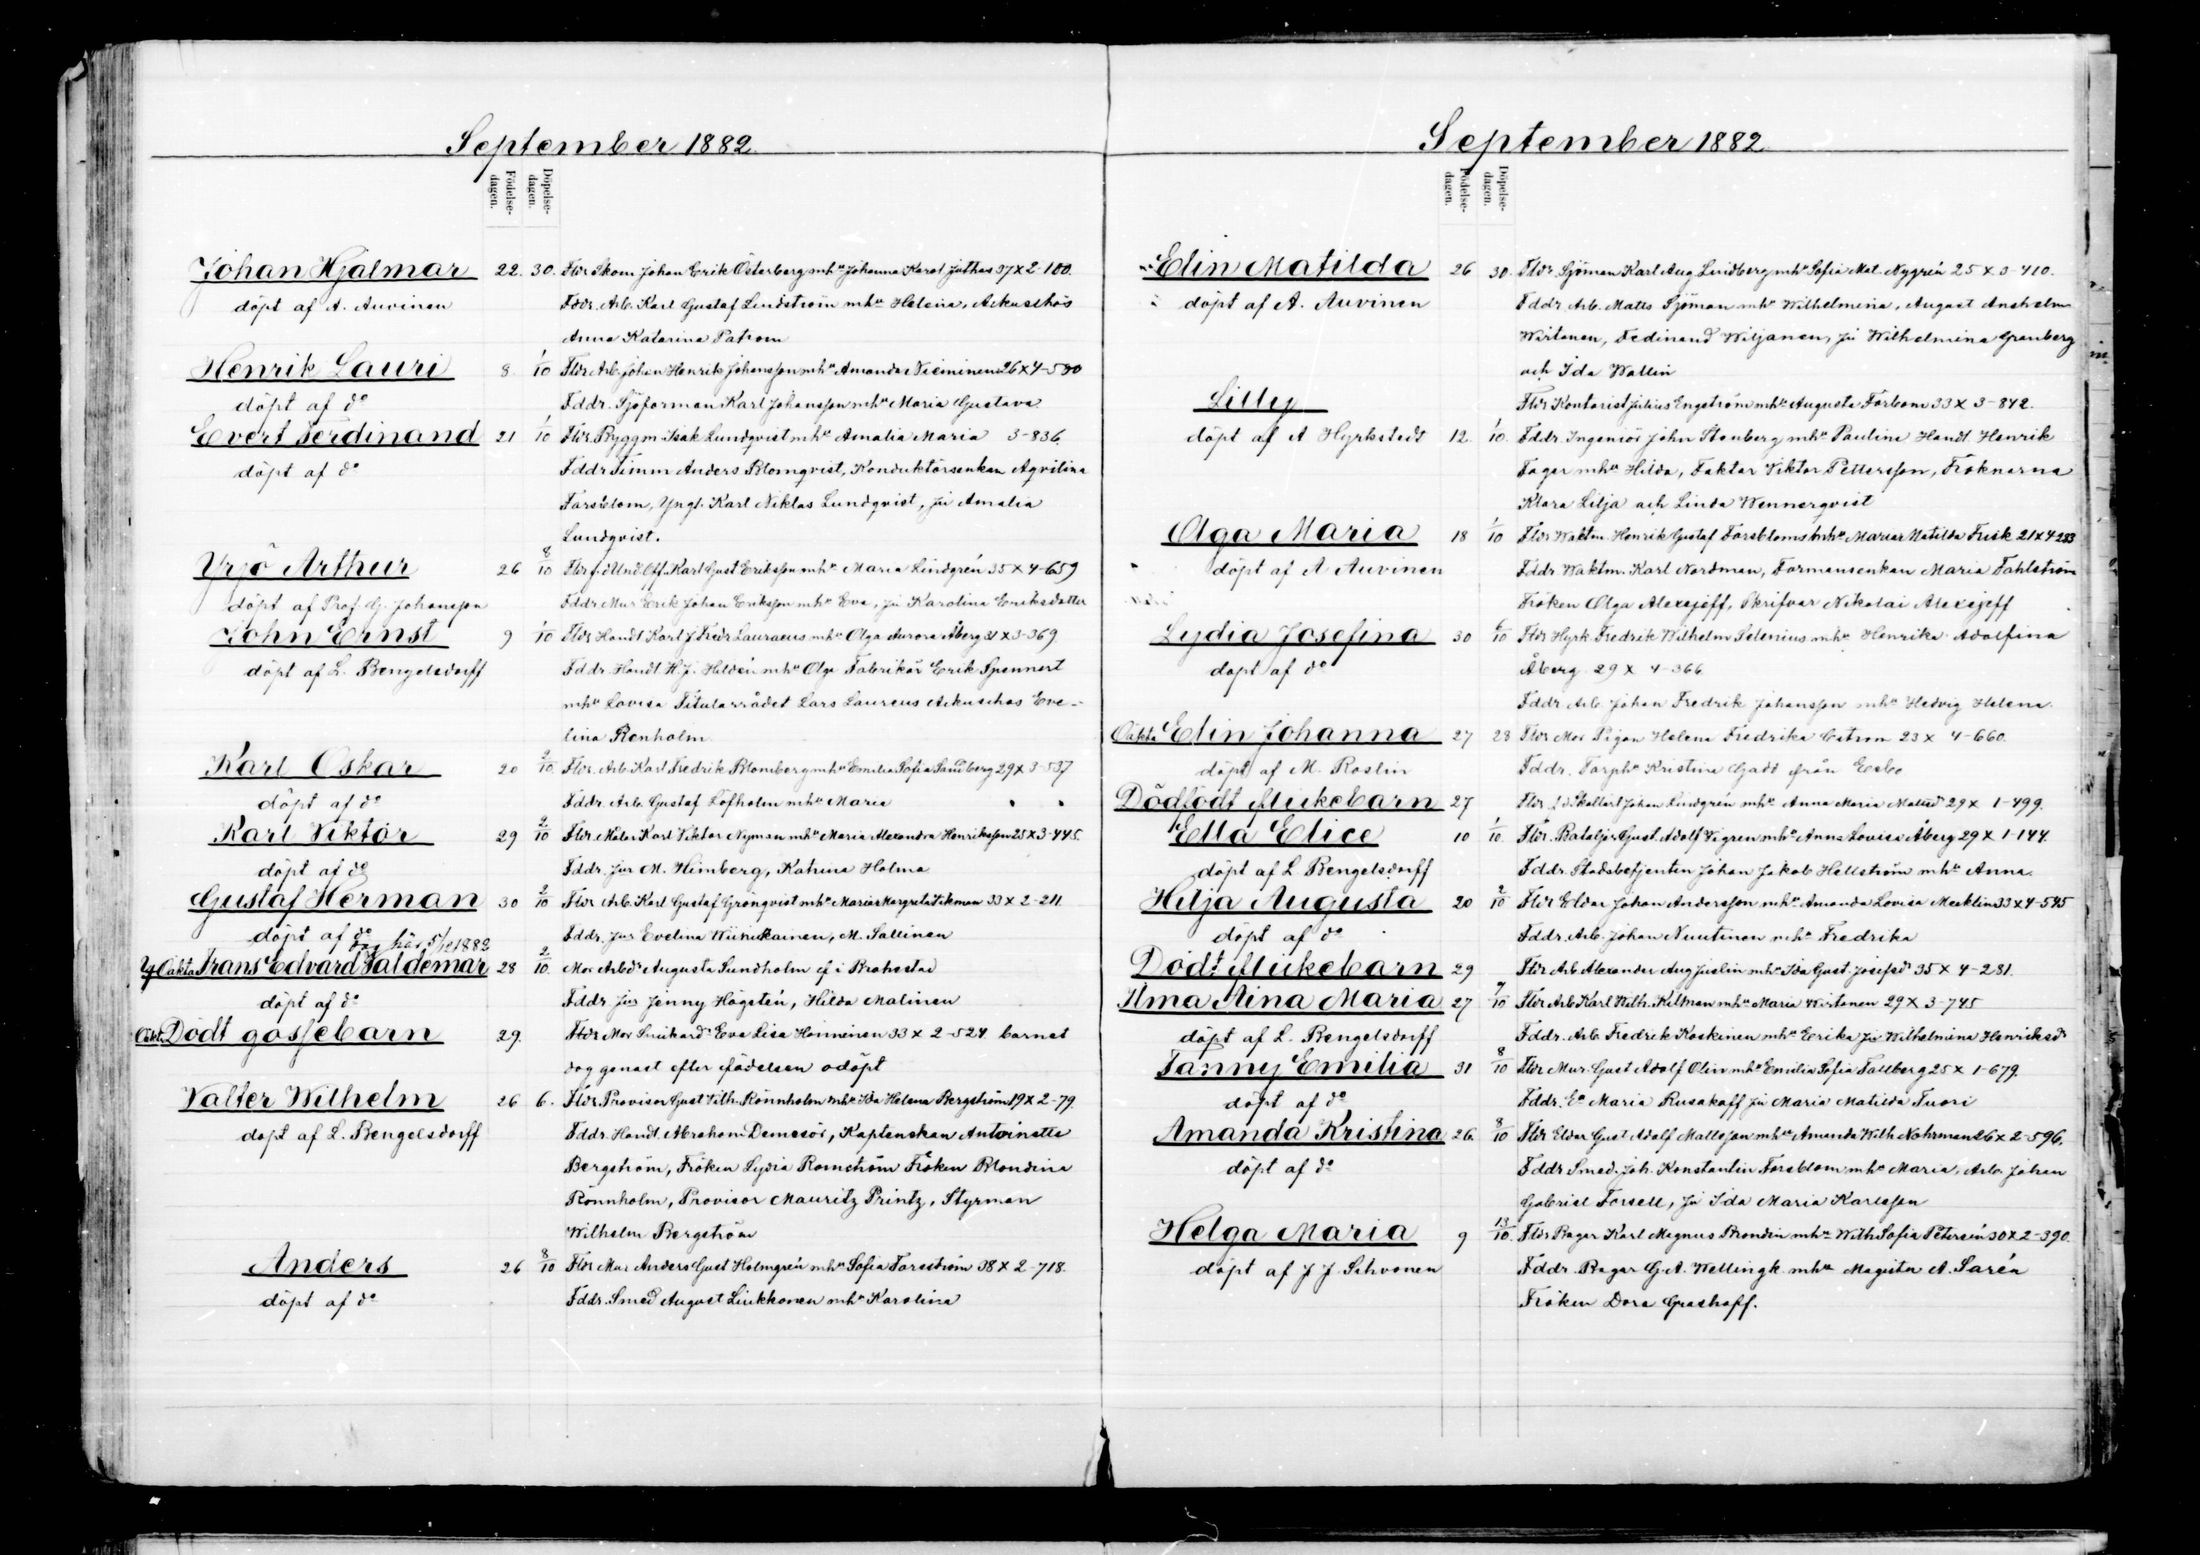 September 1882
Födelse-dagen. Döpelse-dagen.
Johan Hjalmar 22. 30. Fldr Skom Johan Erik Österberg mhu Johanna Karol Juthas 37 x 2-100.
döpt af A. Auvinen Fddr. Arb. Karl Gustaf Lindström mhu Helena, Ackuschös
Anna Katarina Patrom
Henrik Lauri 8. 1/10 Fldr Arb. Johan Henrik Johansson mhu Amanda Nieminen 26 x 4-580
döpt af do Fddr. Sjöforman Karl Johansson mhu Maria Gustava
Evert Ferdinand 21 1/10 Fldr Byggm Isak Lundqvist mhu Amalia Maria 3-836.
döpt af do Fddr Timm Anders Blomqvist, Konduktörsenkan Aqvilina
Forsblom, Yngl. Karl Niklas Lundqvist, Ju Amalia
Lundqvist.
Yrjö Arthur 26 8/10 Fldr f.d Und.Off. Karl Gust Eriksson mhu Maria Lindgrén 35 x 4-659
döpt af Prof. G. Johansson Fddr Mur Erik Johan Eriksson mhu Eva, Ju Karolina Eriksdotter
John Ernst 9 1/10 Fldr Handl Karl J Fredr Lauraeus mhu Olga Aurora Åberg 31 x 3-369
döpt af L. Bengelsdorff Fddr. Handl H.J. Hildén mhu Olga Fabrikör Erik Spennert
mhu Lovisa Titularrådet Lars Laureus Ackuschös Eve-
lina Renholm
Karl Oskar 20 2/10. Fldr. Arb. Karl Fredrik Blomberg mhu Emilia Sofia Sundberg 29 x 3-537
döpt af do Fddr. Arb. Gustaf Löfholm mhu Maria
Karl Viktor 29 2/10 Fldr. Målar Karl Viktor Nyman mhu Maria Alexandra Henriksson 25 x 3-445.
döpt af do Fddr. Jur M. Himberg, Katrina Holma
Gustaf Herman 30 2/10 Fldr Arb. Karl Gustaf Grönqvist mhu Maria Margreta Tikman 33 x 2-211
döpt af do Fddr. Jur Evelina Wiinikainen, M. Sallinen
dog här 5/12 1882
Oäkta Frans Edvard Valdemar 28 2/10. Mor Arbdr Augusta Sundholm ej i Brahestad
döpt af do Fddr Jur Jenny Högstén, Hilda Malinen
Oäkt. Dödt gossebarn 29. Fldr Mor Snickardr Eva Lisa Hänninen 33 x 2-524 barnet
dog genast efter födelsen odöpt
Valter Wilhelm 26 6. Fldr. Provisor Gust Vilh. Rönnholm mhu Ida Helena Bergström 19 x 2-79.
döpt af L. Bengelsdorff Fddr. Handl. Abraham Demesör, Kaptenskan Antoinette
Bergström, Fröken Lydia Romström Fröken Blondina
Rönnholm, Provisor Mauritz Printz, Styrman
Wilhelm Bergström
Anders 26 8/10 Fldr Mur Anders Gust Holmgrén mhu Sofia Forsström 38 x 2-718.
döpt af do Fddr. Smed August Liukkonen mhu Karolina
September 1882
Födelse-dagen. Döpelse-dagen.
Elin Matilda 26 30. Fldr. Sjöman Karl Aug Lindberg mhu Sofia Mat. Nygrén 25 x 3-410.
döpt af A. Auvinen Fddr. Arb. Matts Sjöman mhu Wilhelmina, August Anshelm
Wirtanen, Fedinand Wiljanen, Ju Wilhelmina Granberg
och Ida Wallin
Lilly Fldr Kontorist Julius Engström mhu Augusta Forbom 33 x 3-842.
döpt af A Hyrkstedt 12. 1/10. Fddr. Ingeniör John Stenberg mhu Paulina Handl Henrik
Fager mhu Hilda, Faktor Viktor Pettersson, Fröknarna
Klara Lilja och Linda Wennerqvist
Olga Maria 18 1/10 Fldr Waktm. Henrik Gustaf Forsblom mhu Maria Matilda Frisk 21 x 4-283
döpt af A Auvinen Fddr. Waktm. Karl Nordman, Formansenkan Maria Fahlström
Fröken Olga Alexejeff, Skrifvar Nikolai Alexejeff
Lydia Josefina 30 6/10 Fldr Hyrk Fredrik Wilhelm Selenius mhu Henrika Adolfina
döpt af do Åberg 29 x 4-366
Fddr Arb. Johan Fredrik Johansson mhu Hedvig Helena.
Oäkta Elin Johanna 27 28 Fldr Mor Pigan Helena Fredrika Catron 23 x 4-660.
döpt af M. Roslin Fddr. Torphu Kristina Gadd från Esbo
Dödfödt flickebarn 27 Fldr f.d. Skallärt Johan Lindgrén mhu Anna Maria Mattsdr 29 x 1-499.
Ella Elice 10 1/10. Fldr. Bataljr Gust. Adolf Vigren mhu Anna Lovisa Åberg 29 x 1-144.
döpt af L Bengelsdorff Fddr. Stadsbetjenten Johan Jakob Hellström mhu Anna.
Hilja Augusta 20 2/10 Fldr Eldar Johan Andersson mhu Amanda Lovisa Mecklin 33 x 4-545
döpt af do Fddr. Arb. Johan Nuutinen mhu Fredrika
Dödt flickebarn 29 Fldr Arb Alexander Aug Juslin mhu Ida Gust. Josefsdr 35 x 4-281.
Ilma Aina Maria 27 7/10 Fldr Arb Karl Wilh. Kilman mhu Maria Wirtanen 29 x 3-745
döpt af L. Bengelsdorff Fddr. Arb. Fredrik Koskinen mhu Erika Ju Wilhelmina Henriksdr
Fanny Emilia 31 8/10 Fldr Mur. Gust Adolf Olin mhu Emilia Sofia Tallberg 25 x 1-679.
döpt af do Fddr. Ea Maria Rusakoff Ju Maria Matilda Tuori
Amanda Kristina 26. 8/10 Fldr Eldar Gust Adolf Mattsson mhu Amanda Wilh Nohrman 26 x 2-596.
döpt af do Fddr Smed. Joh. Konstantin Forsblom mhu Maria, Arb. Johan
Gabriel Forsell, Ju Ida Maria Karlsson
Helga Maria 9 13/10. Fldr Bagar Karl Magnus Brondin mhu Wilh Sofia Petersén 30 x 2-390.
döpt af J J Sihvonen Fddr. Bagar G.A. Wellingk mhu Magister A. Sarén
Fröken Dora Grashoff.